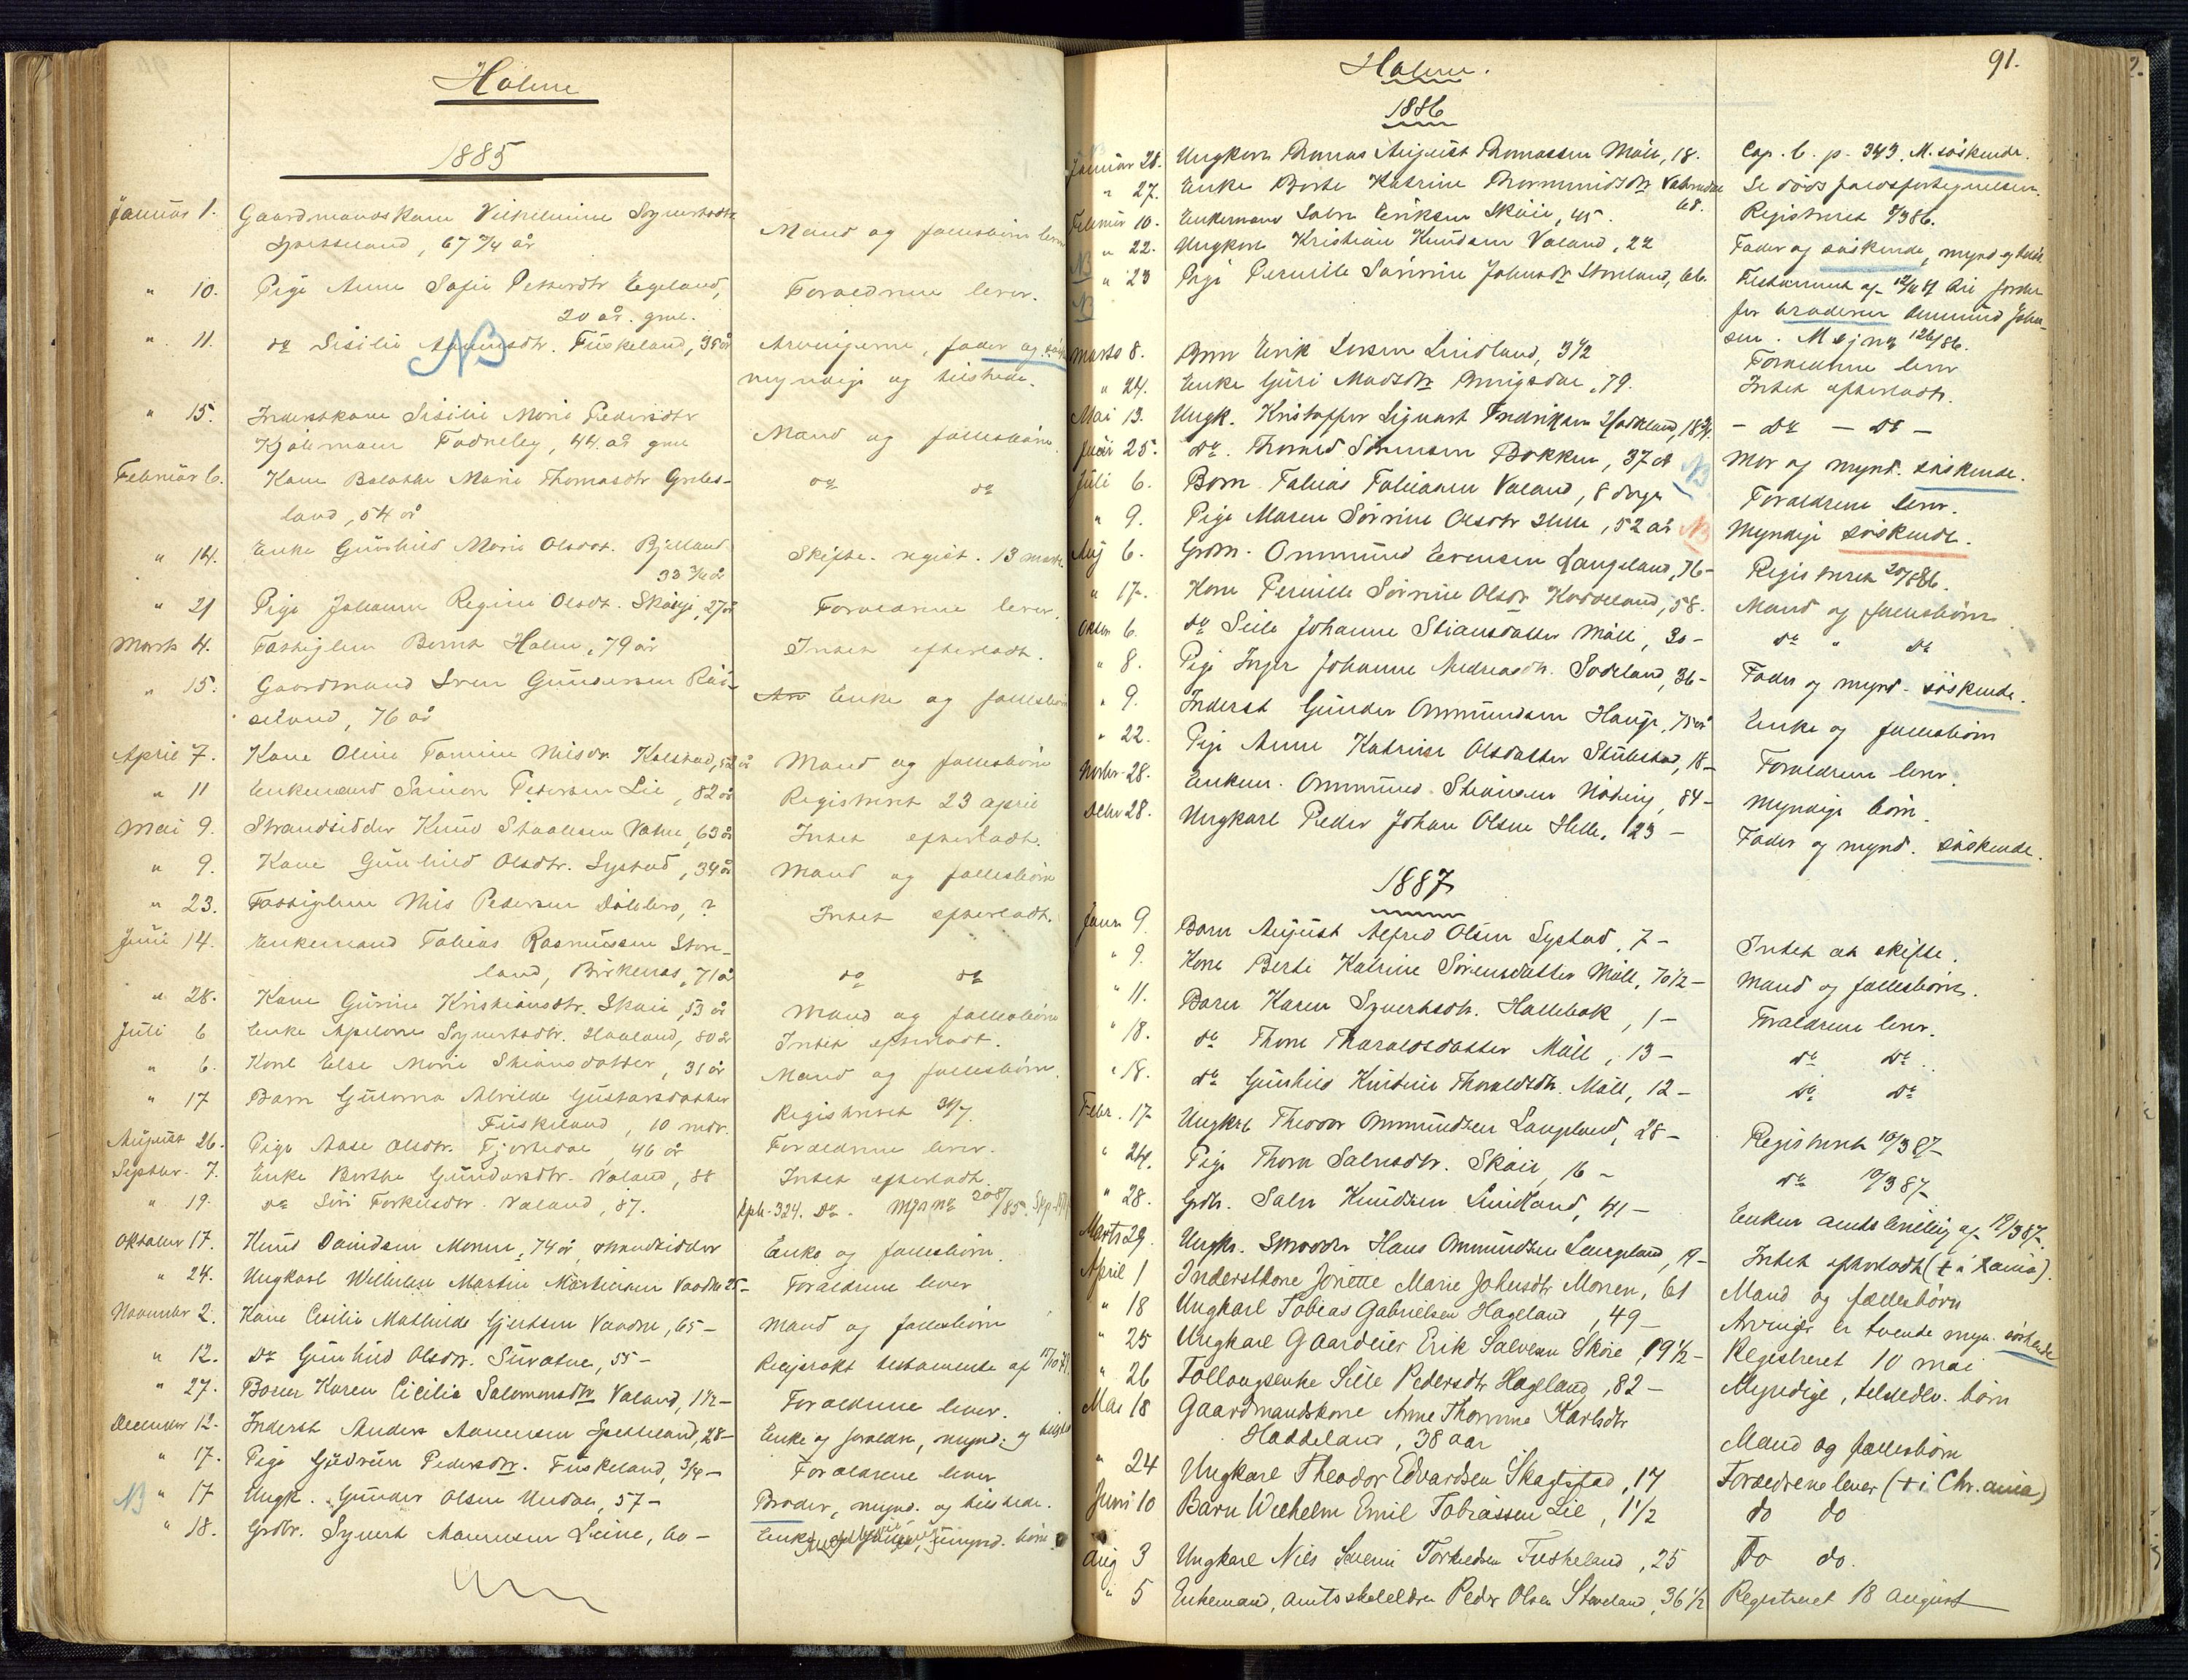 Holme
1885
Januar 1. Gaardmandskone Vilhelmine Syvertsdtr
Spetteland, 67 3/4 år Mand og fællesbörn lever
" 10. Pige Anne Sofie Pettersdtr Egeland,
20 år. gml. Foraeldrene lever.
" 11. do Sisilie Aanensdtr. Fuskeland, 35 år Arvingerne, fader og
NB
myndige og tilstede.
" 15. Inderstkone Sisilie Marie Pedersdtr
Kjølemoen Fodneley, 44 år gml Mand og fællesbörn
Februar 6. Kone Marie Thomasdtr
land, 54 år do do
" 14. Enke Gunhild Marie Olsdat. Bjelland
93 3/4 år Skifte. regist. 13 marts.
" 21 Pige Johanne Regine Olsdt. Skaaje, 27 år Foraeldrene lever.
Marts 4. Fattiglem Bernt Holm, 79 år Intet efterladt.
" 15. Gaardmand Sven Gundersen
seland, 76 år Enke og fællesbörn
April 7. Kone Oline Tomine Nilsdr. Kolstad, 52 år Mand og fællesbörn
" 11 Enkemand Simon Petersen Lie, 82 år Registreret 23 april
Mai 9. Strandsidder Knud Staalesen Vatne, 63 år Intet efterladt.
" 9. Kone Gunhild Olsdtr. Systad, 34 år Mand og fællesbörn
" 23. Fattiglem Nils Pedersen Dölebro, ? Intet efterladt.
Juni 14. Enkemand Tobias Rasmussen Stove-
land, Birkenes, 71 år do do
" 28. Kone Gurine Kristiansdtr. Skaie, 53 år Mand og fællesbörn
Juli 6 Enke Apelone Syvertsdtr. Haaland, 80 år Intet efterladt.
" 6. Kone Else Marie Stiansdatter, 31 år Mand og fællesbörn.
" 17 Barn Gusta Alvilde Gustavsdatter
Fuskeland, 10 mdr. Registreret 31/7
August 26. Pige Aase Olsdtr. Fjortedal, 46 år Foraeldrene lever.
Septbr. 7. Enke Berthe Gundersdtr. Valand, 88 Intet efterladt.
" 19. do Siri Torkelsdtr. Valand, 87. Rph. 324. do. Mjr no 2087/85.
Oktober 17. Knud Davidsen Monen, 74 år, strandsidder Enke og fællesbörn.
" 24. Ungkarl Wilhelm Martin Martinsen Vaadne 25 – Foraeldrene lever
November 2. Kone Cecilie Mathilde Gjertsen Vaadne, 65 – Mand og fællesbörn
" 12. do Gunhild Olsdtr. Suvatne, 55 – Gjensidigt testamente af
" 27. Barn Karen Cicilie Salomonsdtr Valand, 1 1/2 – Foraeldrene lever.
December 12. Inderst Anders Aanensen Spetteland, 28 – Enke og foraeldre, mynd. og tilstede
" 17. Pige Gudrun Pedersdtr. Fuskeland, 3/4 – Foraeldrene lever
NB " 17 Ungk. Gunder Olsen Undal, 57 – Broder, mynd. og tilstede.
" 18. Grdbr. Syvert Aanensen Leine, 60 – Enke umynd. börn.
91.
Holme.
1886
Januar 28. Ungkarl Thomas August Thomassen Möll, 18. Cap. 6. p. 343. M. söskende.
" 27. Enke Berte Katrine Thormundsdtr Valand
68. Se dödsfaldsfortegnelsen.
Februar 10. Enkemand Salve Eriksen Skaie, 45. Registreret 8/3 86.
" 22. Ungkarl Kristian Knudsen Valand, 22 Fader og söskende, mynd og tilst.
NB " 23 Pige Pernille Sörine Johnsdtr Stoveland, 66. Testament af 12/4 81
NB for broderen Ommund John-
sen. M sj no 126/86.
Marts 8. Barn Erik Larsen Lindland, 3 1/2 Foraeldrene lever
" 24. Enke Guri Madsdtr Bringsdal, 79. Intet efterladt.
Mai 13. Ungk. Kristoffer Sigvart Fredriksen Haaland, 18 3/4. – do – do –
Juni 25. do. Thomas Sörensen Bakken, 37 år NB Mor og mynd. söskende.
Juli 6. Barn Tobias Tobiassen Valand, 8 dage Foraeldrene lever.
" 9. Pige Maren Sörine Olsdtr Helle, 52 år NB Myndige söskende.
Aug 6. Grdm. Ommund Evensen Langeland, 76 – Registreret 20/8 86.
" 17. Kone Pernille Sörine Olsdtr Haddeland, 58. Mand og fællesbörn
Oktbr 6. do Sille Johanne Stiansdatter Möll, 30 – do " do
" 8. Pige Inger Johanne Andreasdtr. Sodeland, 36 – Fader og mynd. söskende.
" 9. Inderst Gunder Ommundsen Hauge, 75 år Enke og fællesbörn
" 22. Pige Anne Katrine Olsdatter Stubstad, 18 – Foraeldrene lever.
Novbr. 28. Enkem. Ommund Stiansen Nöding, 84 – Myndige börn.
Decbr 28. Ungkarl Peder Johan Olsen Helle, 23 – Fader og mynd. söskende.
1887
Janr 9. Barn August Alfred Olsen Systad, 7 – Intet at skifte.
" 9. Kone Berte Katrine Sörensdatter Möll, 70 1/2 – Mand og fællesbörn.
" 11. Barn Karen Syvertsdtr. Hallebak, 1 – Foraeldrene lever.
" 18. do Thone Tharaldsdatter Möll, 13 – do do.
" 18. do Gunhild Kristine Tharaldsdtr. Möll, 12 – do do
Febr. 17 Ungkrl Theodor Ommundsen Langeland, 28 – Registreret 10/3 87
" 24. Pige Thora Salvesdtr. Skaie, 16 – do 10/3 87
" 28. Grdbr. Salve Knudsen Lindland, 41 – Enken amtsbevilling af 12/3 87
Marts 29. Ungkr. Hans Ommundsen Langeland, 19 – Intet efterladt
April 1 Inderstkone Joriette Marie Johnsdtr Monen, 61 Mand og fællesbörn
" 18 Ungkarl Tobias Gabrielsen Hageland, 49 – Arvinger er tvende myn. söskende
" 25 Ungkarl Gaardeier Erik Salvesen Skoie, 19 1/2 – Registreret 10 mai
" 26 Follaugsenke Sille Pedersdtr Hageland, 82 – Myndige, tilstedev. börn
Mai 18 Gaardmandskone Anne Thomine Karlsdtr
Haddeland, 38 aar Mand og fællesbörn
" 24 Ungkarl Theodor Edvardsen Skagestad, 17 Forældrene lever (+ i Chr.ania)
Juni 10 Barn Wilhelm Emil Tobiassen Lie, 1 1/2 do do
Aug 3 Ungkarl Nils Severin Torkelsen Fuskeland, 25 Do do.
" 5 Enkemand, amtsskolelærer Peder Olsen Stoveland, 36 1/2 Registreret 18 august